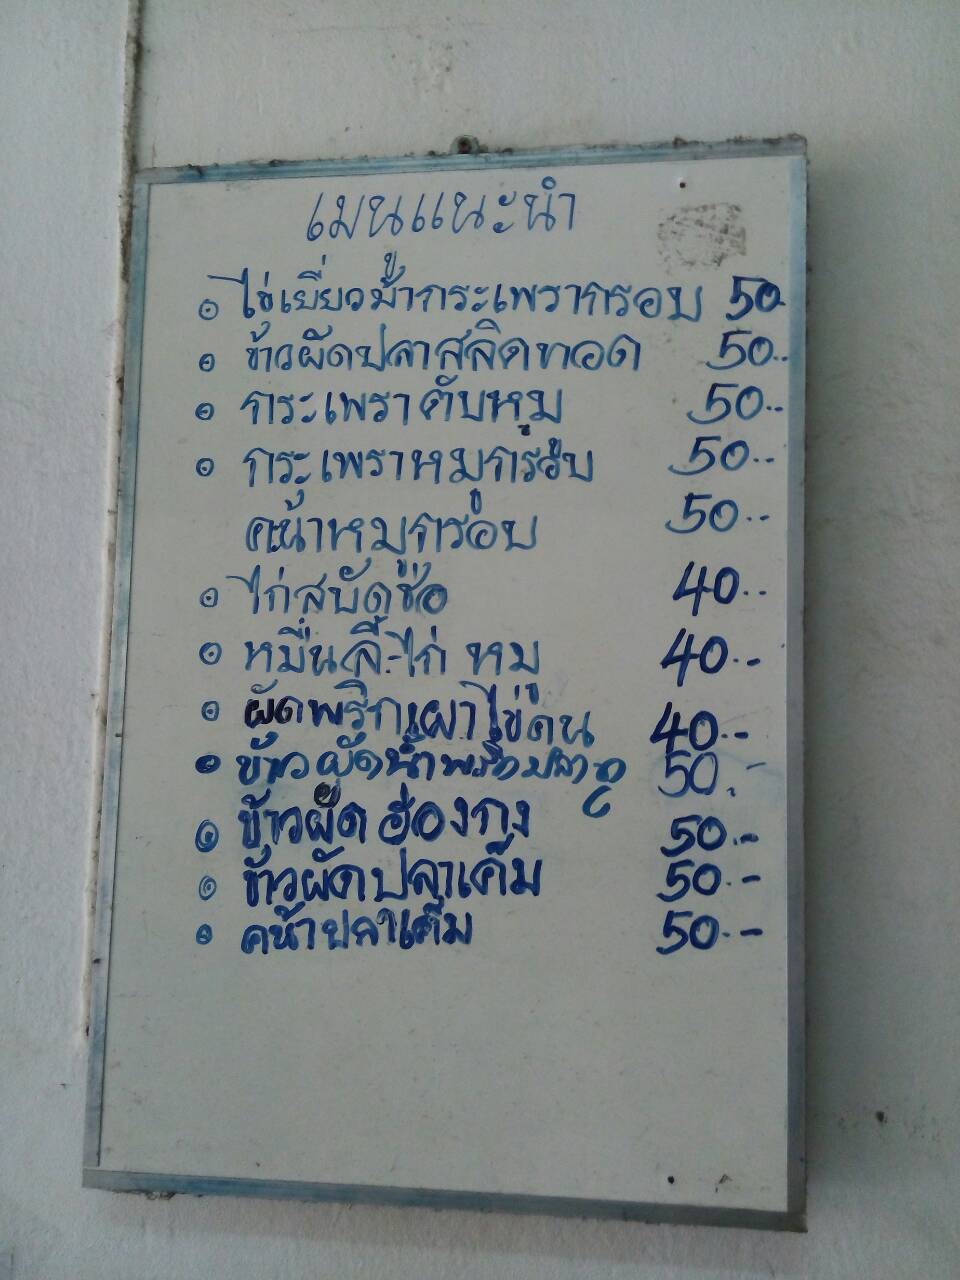 เมนูแนะนำ
ไข่เยี่ยวม้ากระเพรากรอบ 50
ข้าวผัดปลาสลิดทอด 50..
กระเพราตับหมู 50..
กระเพราหมูกรอบ 50..
คน้าหมูกรอบ 50..
ไก่สบัดช่อ 40..
หมื่นลี-ไก่ หมู 40.-
ผัดพริกเผาไข่ดน 40.-
ข้าวผัดน้ำพริกปลาทู 50.-
ข้าวผัดฮ่องกง 50.-
ข้าวผัดปลาเค็ม 50.-
คน้าปลาเค็ม 50.-